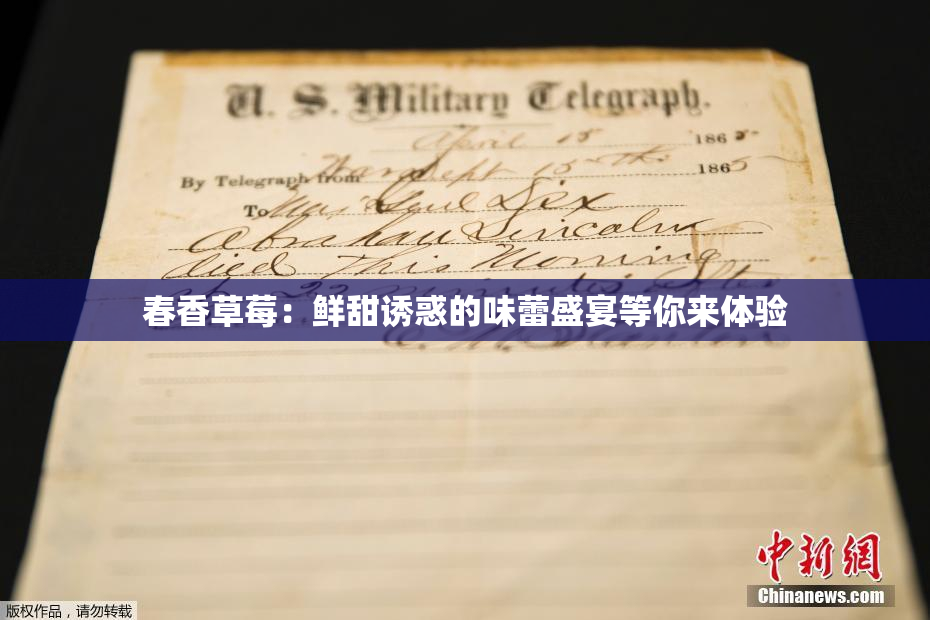 U. S. Military Telegraph.
April 15 1865
By Telegraph from War Dept 15th 1865
To Maj Genl Dix
Abraham Lincoln
died This Morning
at 22 minutes after
春香草莓：鲜甜诱惑的味蕾盛宴等你来体验
E. M. Stanton
中新网
Chinanews.com
版权作品，请勿转载